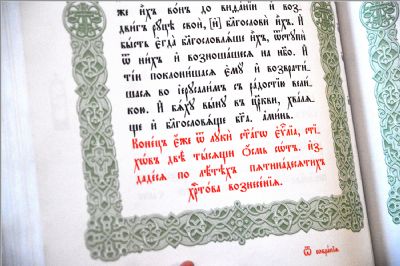 же и҆́хъ во́нъ до виѳа́нїи и҆ воз-
дви́гъ рꙋ́цѣ своѝ, [и҆] блгⷭ҇овѝ и҆̀хъ. И҆
бы́сть є҆гда̀ блгⷭ҇овлѧ́ше и҆̀хъ, ѿстꙋпѝ
ѿ ни́хъ и҆ возноша́шесѧ на нб҃о. И҆
ті́и поклони́шасѧ є҆мꙋ̀ и҆ возврати́-
шасѧ во і҆ерⷭ҇али́мъ съ ра́достїю вели́-
кою. И҆ бѧ́хꙋ вы́нꙋ въ цр҃кви, хва́лѧ-
ще и҆ блгⷭ҇овѧ́ще бг҃а. а҆ми́нь.
Коне́цъ є҆́же ѿ лꙋкѝ ст҃а́гѡ є҆ѵⷢ҇лїа, сті-
хѡ́въ двѣ̀ ты́сѧщи ѻ҆́смь сѡ́тъ. и҆з-
даде́сѧ по лѣ́тѣхъ пѧтина́десѧтихъ
хрⷭ҇то́ва вознесе́нїѧ.
ѿ собра́нїѧ